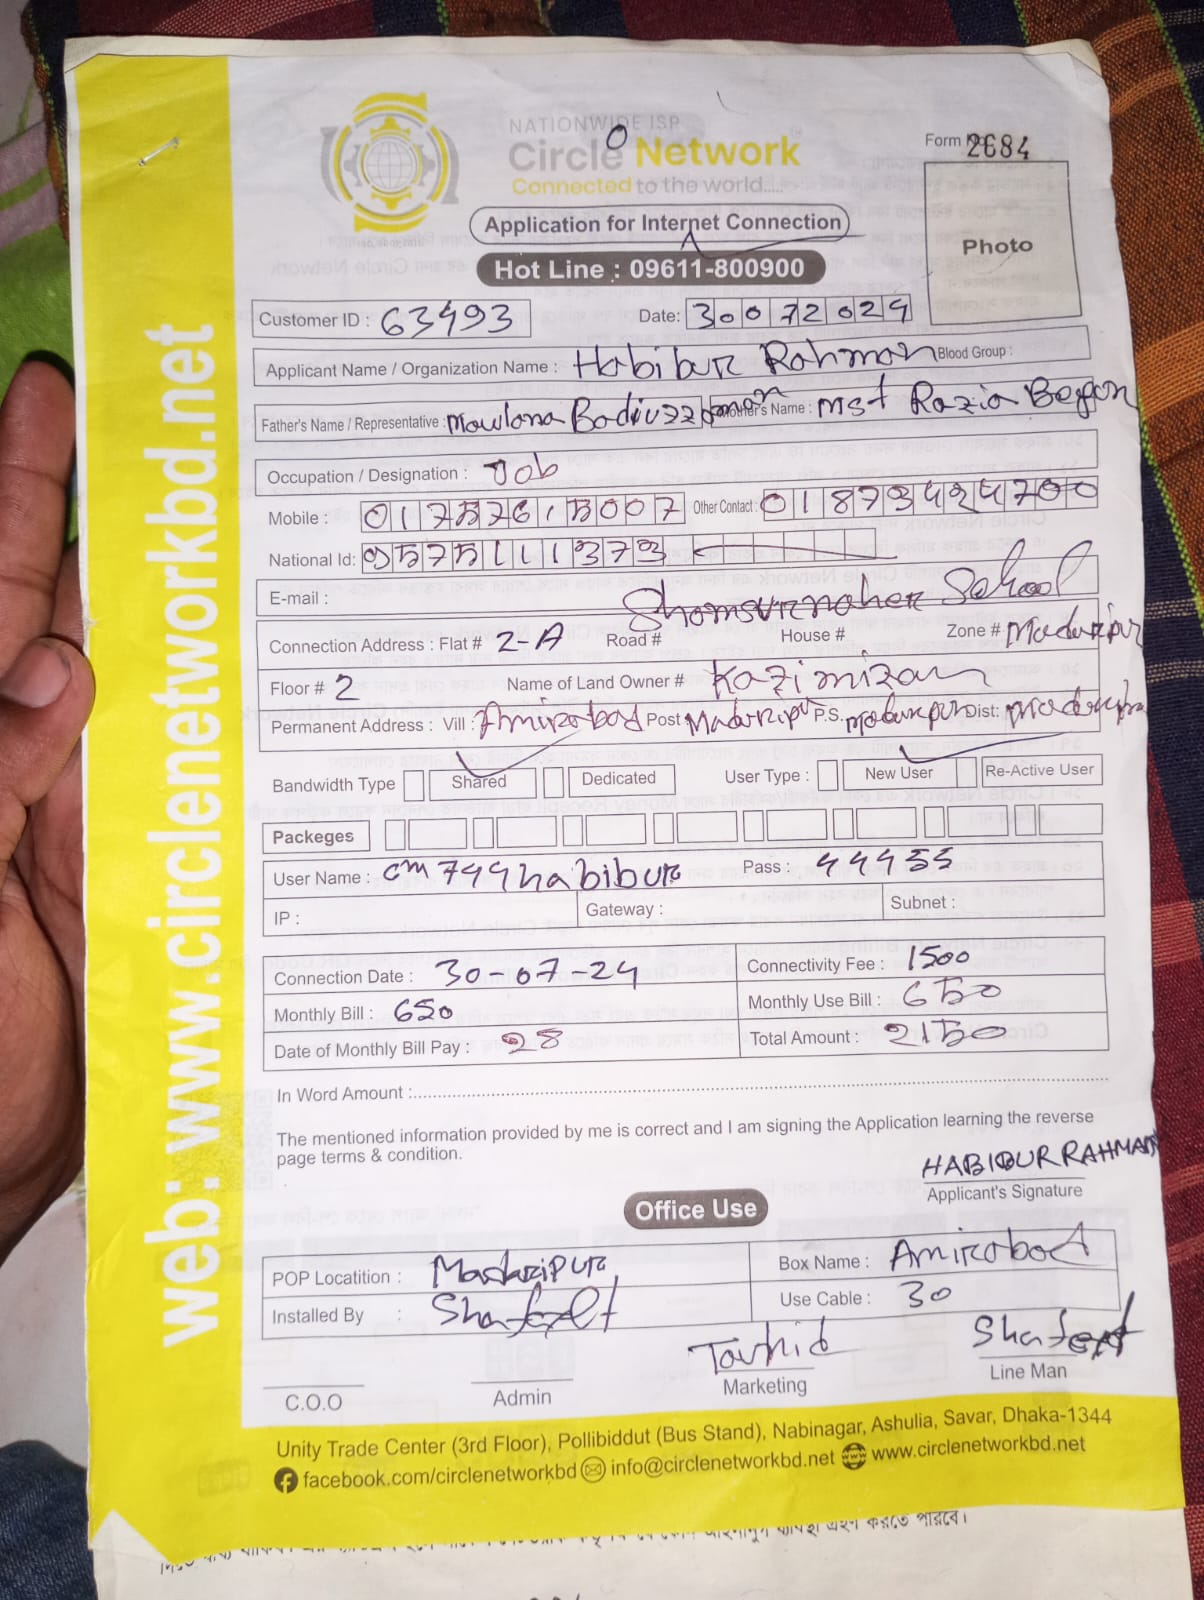 NATIONWIDE ISP
Circle Network
Connected to the world.....
Form No 2684
Application for Internet Connection
Photo
Hot Line : 09611-800900
Customer ID : 63493 Date: 30072024
Applicant Name / Organization Name : Habibur Rahman Blood Group :
Father's Name / Representative : Mowlana Badiuzzaman Mother's Name : Mst Razia Begom
Occupation / Designation : Job
Mobile : 01757615007 Other Contact: 01873424700
National Id: 9575111373
E-mail :
Shamsurnaher School
Connection Address : Flat # 2-A Road # House # Zone # Madaripur
Floor # 2 Name of Land Owner # Kazi mizan
Permanent Address : Vill : Amirabad Post Madaripur P.S. Madaripur Dist: Madaripur
Bandwidth Type Shared Dedicated User Type : New User Re-Active User
Packeges
User Name : cm749habibur Pass : 44455
IP : Gateway : Subnet :
Connection Date : 30-07-24 Connectivity Fee : 1500
Monthly Bill : 650 Monthly Use Bill : 650
Date of Monthly Bill Pay : 28 Total Amount : 2150
In Word Amount :
The mentioned information provided by me is correct and I am signing the Application learning the reverse
page terms & condition.
HABIBUR RAHMAN
Applicant's Signature
Office Use
POP Locatition : Madaripur Box Name : Amirabad
Installed By : Use Cable : 30
Tawhid
C.O.O Admin Marketing Line Man
Unity Trade Center (3rd Floor), Pollibiddut (Bus Stand), Nabinagar, Ashulia, Savar, Dhaka-1344
facebook.com/circlenetworkbd info@circlenetworkbd.net www.circlenetworkbd.net
web: www.circlenetworkbd.net